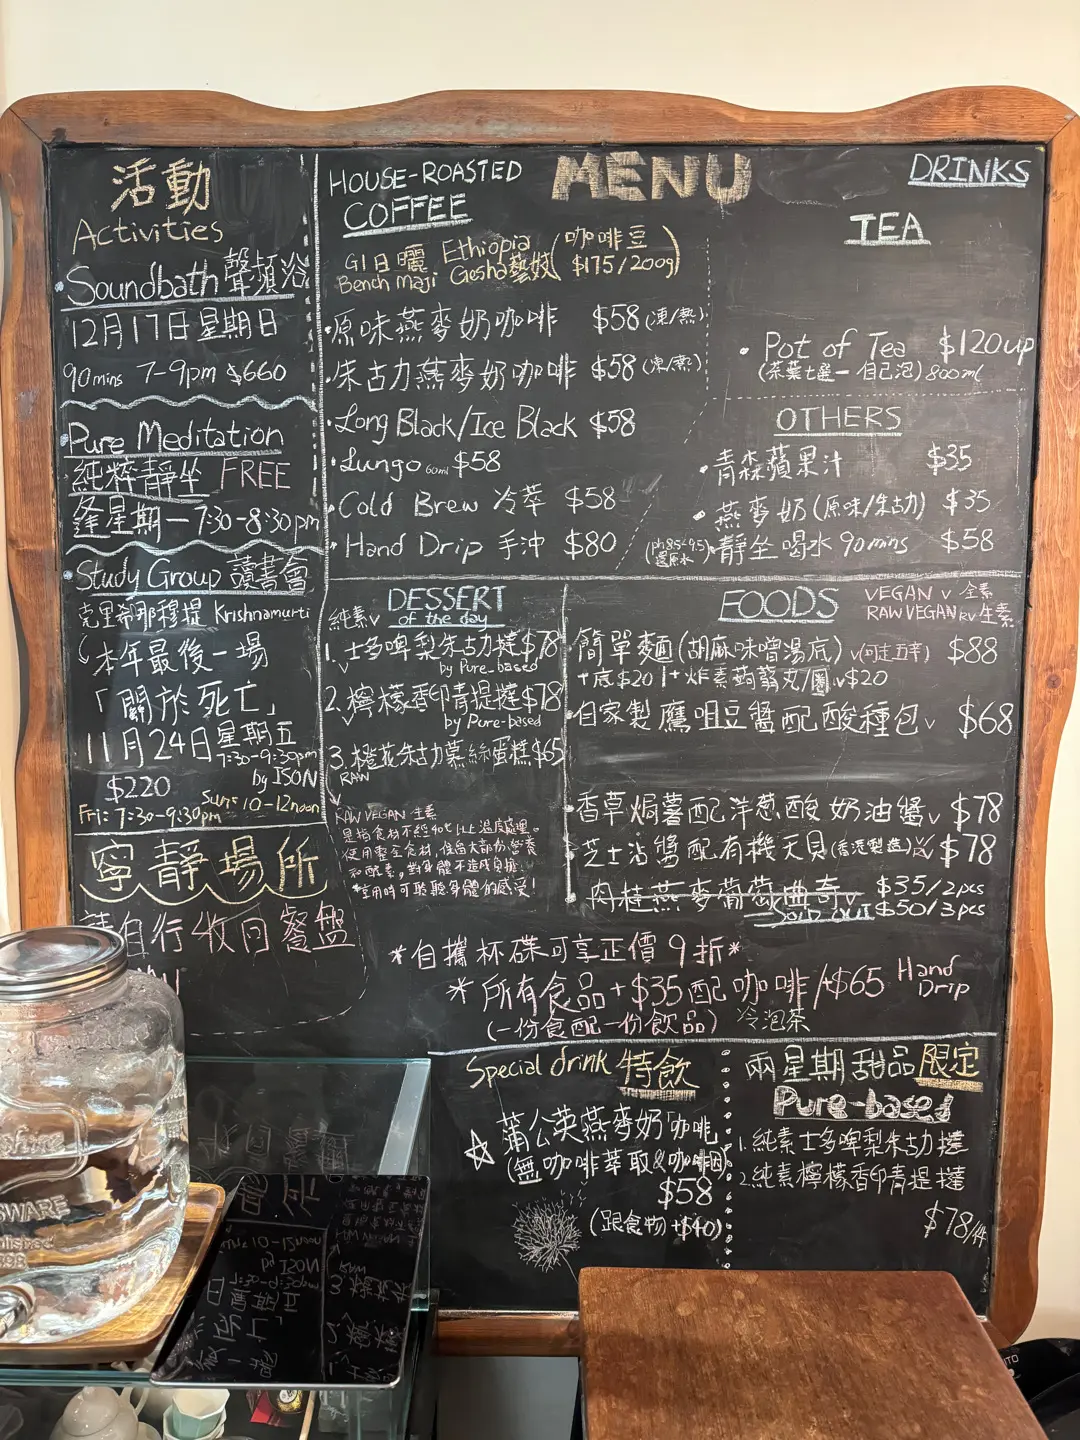 活動
Activities
Soundbath 聲頻浴
12月17日星期日
90mins 7-9pm $660
Pure Meditation
純粹靜坐 FREE
逢星期一7:30-8:30pm
Study Group 讀書會
克里希那穆提 Krishnamurti
本年最後一場
「關於死亡」
11月24日星期五
7:30-9:30pm
$220 by ISON
Fri: 7:30-9:30pm Sun: 10-12noon
寧靜場所
請自行收回餐盤
MENU
HOUSE-ROASTED
COFFEE
G1日曬 Ethiopia (咖啡豆
Bench Maji Gesha藝妓 $175/200g)
·原味燕麥奶咖啡 $58(凍/熱)
·朱古力燕麥奶咖啡 $58(凍/熱)
·Long Black/Ice Black $58
·Lungo 60ml $58
·Cold Brew 冷萃 $58
·Hand Drip 手沖 $80
DRINKS
TEA
·Pot of Tea $120up
(茶葉七選一 自己泡) 800ml
OTHERS
·青森蘋果汁 $35
·燕麥奶(原味/朱古力) $35
(ph8.5-9.5)·靜坐喝水 90mins $58
還原水
純素v DESSERT
of the day
1. 士多啤梨朱古力撻$78
v by Pure-based
2. 檸檬香印青提撻$78
v by Pure-based
3. 橙花朱古力慕絲蛋糕$65
RAW
RAW VEGAN 生素
是指食材不經40℃以上溫度處理。
使用整全食材,保留大部份營養
和酵素,對身體不造成負擔
*享用時可聆聽身體的感受!
FOODS VEGAN v 全素
RAW VEGAN RV 生素
簡單麵(胡麻味噌湯底) v(可走五辛) $88
+底$20 |+炸素蒟蒻丸/圈 v$20
自家製鷹咀豆醬配酸種包v $68
香草焗薯配洋葱酸奶油醬v $78
芝士沾醬配有機天貝(香港製造)v $78
肉桂燕麥葡萄曲奇v $35/2pcs
SOLD OUT $50/3pcs
*自攜杯碟可享正價9折*
*所有食品+$35配咖啡/+$65 Hand Drip
(一份食配一份飲品) 冷泡茶
Special drink 特飲
☆蒲公英燕麥奶咖啡
(無咖啡萃取&咖啡因)
$58
(跟食物+$40)
兩星期甜品限定
Pure-based
1.純素士多啤梨朱古力撻
2.純素檸檬香印青提撻
$78/件